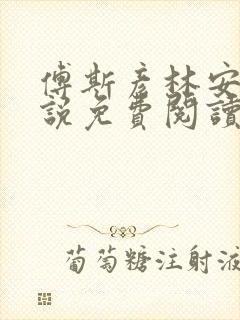 傅斯彦林安
說免費閱讀
葡萄糖注射液